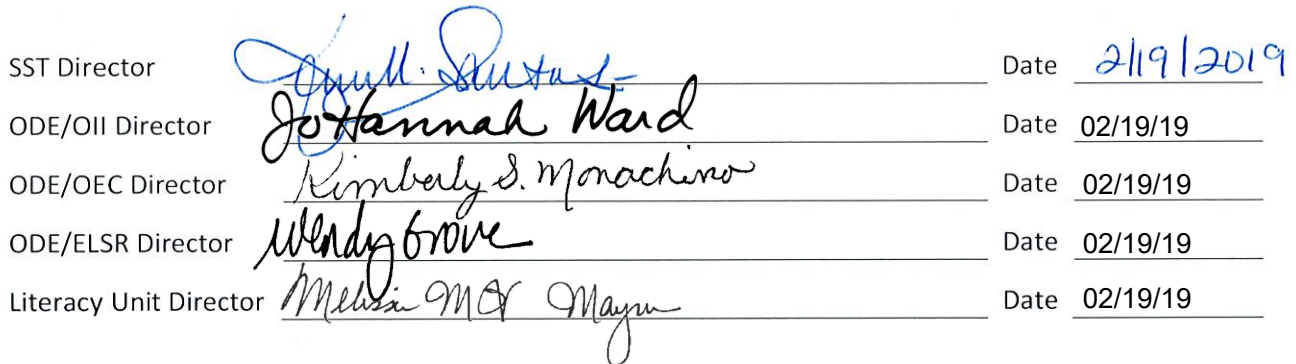 SST Director Date 2/19/2019
ODE/OII Director JoHannah Ward Date 02/19/19
ODE/OEC Director Kimberly S. Monachino Date 02/19/19
ODE/ELSR Director Wendy Grove Date 02/19/19
Literacy Unit Director Melissa Date 02/19/19